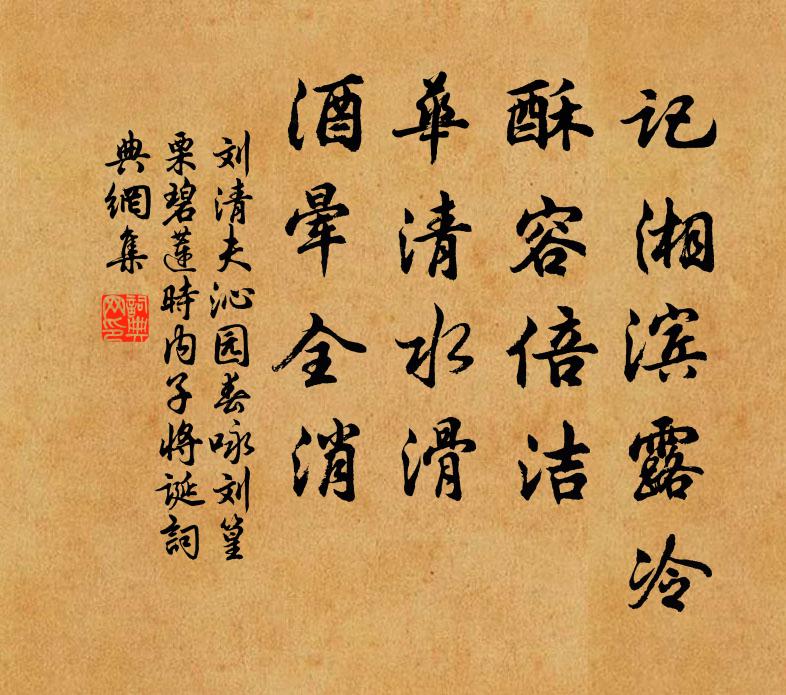 记湘滨露冷
酥容倍洁
华清水滑
酒晕全消
刘清夫沁园春咏刘篁
栗碧莲時内子将诞詞
典網集
詞典
网印